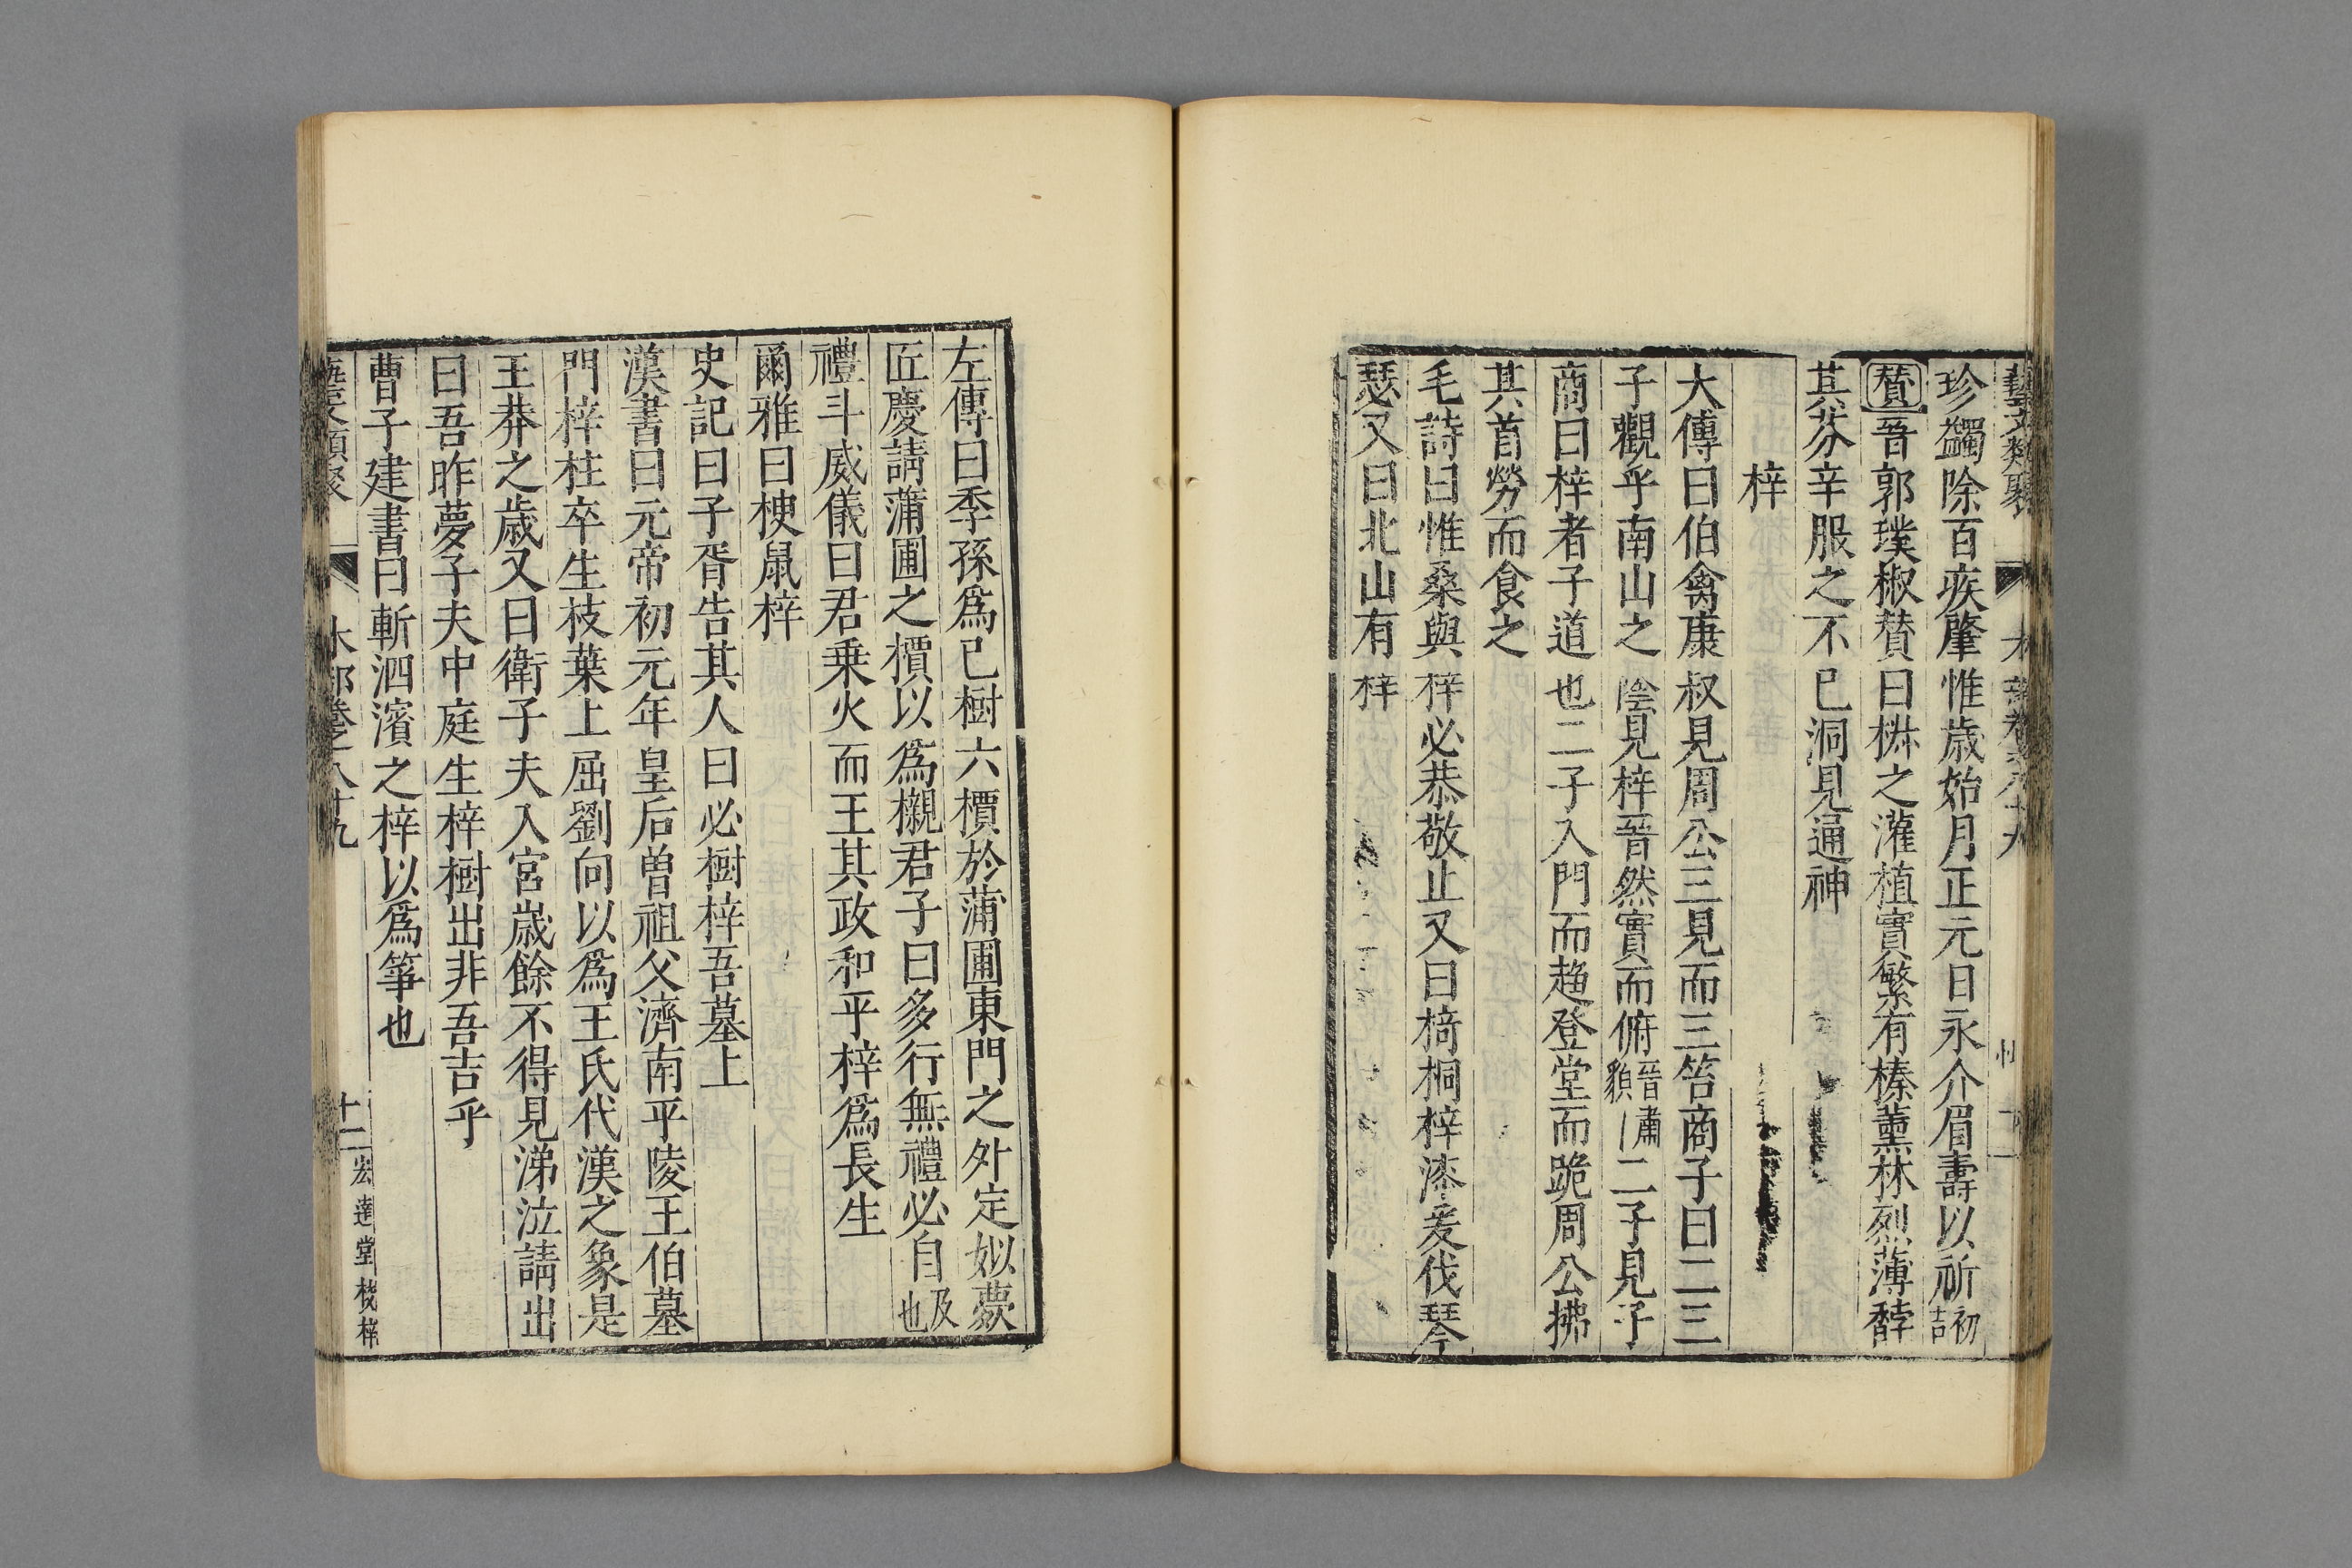 藝文類聚 木部卷之八十九
珍蠲除百疾肇惟歲始月正元日永介眉壽以祈初吉
贊晉郭璞椒贊曰椒之灌植實繁有榛薰林烈薄馞
其芬辛服之不已洞見通神
梓
大傳曰伯禽康叔見周公三見而三笞商子曰二三
子觀乎南山之陰見梓晉然實而俯晉肅貌二子見子
商曰梓者子道也二子入門而趨登堂而跪周公拂
其首勞而食之
毛詩曰惟桑與梓必恭敬止又曰椅桐梓漆爰伐琴
瑟又曰北山有梓
左傳曰季孫為已樹六檟於蒲圃東門之外定姒薨
匠慶請蒲圃之檟以為櫬君子曰多行無禮必自及也
禮斗威儀曰君乗火而王其政和平梓為長生
爾雅曰楰鼠梓
史記曰子胥告其人曰必樹梓吾墓上
漢書曰元帝初元年皇后曾祖父濟南平陵王伯墓
門梓柱卒生枝葉上屈劉向以為王氏代漢之象是
王莽之歲又曰衛子夫入宮歲餘不得見涕泣請出
曰吾昨夢子夫中庭生梓樹出非吾吉乎
曹子建書曰斬泗濱之梓以為箏也
藝文類聚 木部卷之八十九 十二 宏達堂栞梓